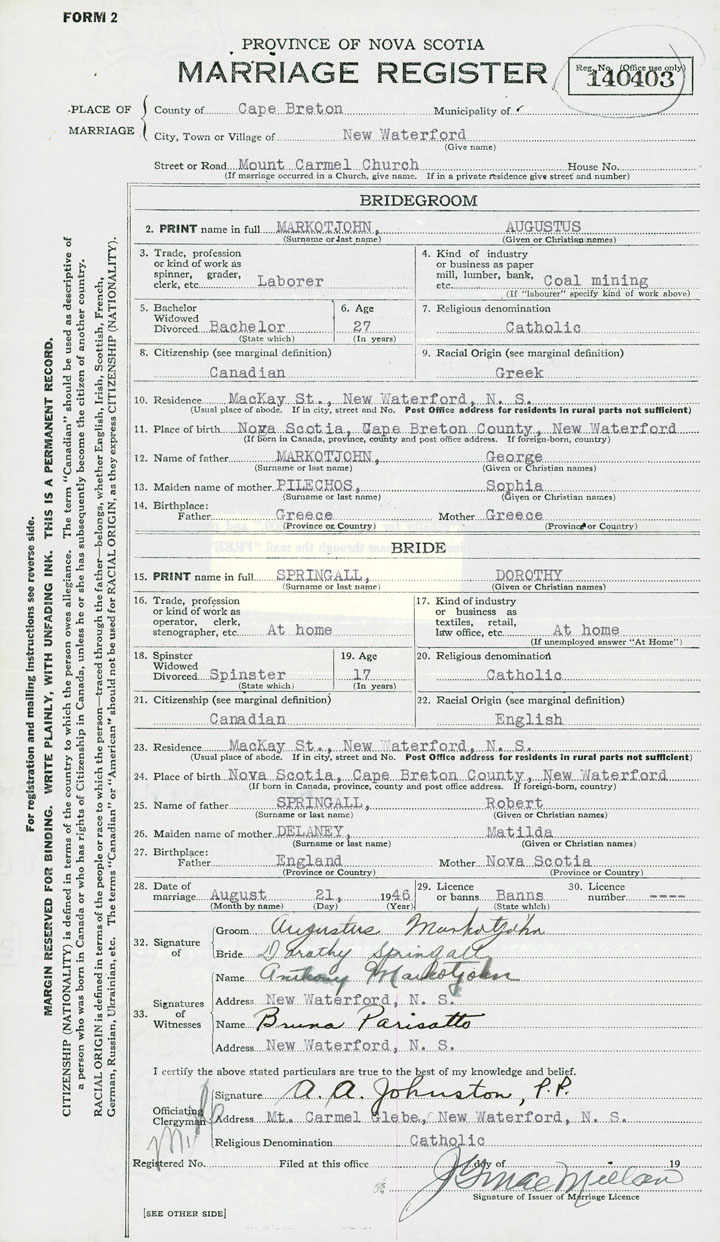 FORM 2
PROVINCE OF NOVA SCOTIA
MARRIAGE REGISTER
Reg. No. (Office use only)
140403
PLACE OF MARRIAGE
County of Cape Breton Municipality of
City, Town or Village of New Waterford
(Give name)
Street or Road Mount Carmel Church House No.
(If marriage occurred in a Church, give name. If in a private residence give street and number)
BRIDEGROOM
2. PRINT name in full MARKOTJOHN, AUGUSTUS
(Surname or last name) (Given or Christian names)
3. Trade, profession
or kind of work as
spinner, grader,
clerk, etc. Laborer
4. Kind of industry
or business as paper
mill, lumber, bank,
etc. Coal mining
(If "labourer" specify kind of work above)
5. Bachelor
Widowed
Divorced Bachelor
(State which)
6. Age
27
(In years)
7. Religious denomination
Catholic
8. Citizenship (see marginal definition)
Canadian
9. Racial Origin (see marginal definition)
Greek
10. Residence MacKay St., New Waterford, N. S.
(Usual place of abode. If in city, street and No. Post Office address for residents in rural parts not sufficient)
11. Place of birth Nova Scotia, Cape Breton County, New Waterford
(If born in Canada, province, county and post office address. If foreign-born, country)
12. Name of father MARKOTJOHN, George
(Surname or last name) (Given or Christian names)
13. Maiden name of mother PILECHOS, Sophia
(Surname or last name) (Given or Christian names)
14. Birthplace:
Father Greece Mother Greece
(Province or Country) (Province or Country)
BRIDE
15. PRINT name in full SPRINGALL, DOROTHY
(Surname or last name) (Given or Christian names)
16. Trade, profession
or kind of work as
operator, clerk,
stenographer, etc. At home
17. Kind of industry
or business as
textiles, retail,
law office, etc. At home
(If unemployed answer "At Home")
18. Spinster
Widowed
Divorced Spinster
(State which)
19. Age
17
(In years)
20. Religious denomination
Catholic
21. Citizenship (see marginal definition)
Canadian
22. Racial Origin (see marginal definition)
English
23. Residence MacKay St., New Waterford, N. S.
(Usual place of abode. If in city, street and No. Post Office address for residents in rural parts not sufficient)
24. Place of birth Nova Scotia, Cape Breton County, New Waterford
(If born in Canada, province, county and post office address. If foreign-born, country)
25. Name of father SPRINGALL, Robert
(Surname or last name) (Given or Christian names)
26. Maiden name of mother DELANEY, Matilda
(Surname or last name) (Given or Christian names)
27. Birthplace:
Father England Mother Nova Scotia
(Province or Country) (Province or Country)
28. Date of
marriage August 21, 1946
(Month by name) (Day) (Year)
29. Licence
or banns Banns
(State which)
30. Licence
number ----
32. Signature of
Groom Augustus Markotjohn
Bride Dorothy Springall
33. Signatures of Witnesses
Name Anthony Markotjohn
Address New Waterford, N. S.
Name Bruna Parisatto
Address New Waterford, N. S.
I certify the above stated particulars are true to the best of my knowledge and belief.
Officiating Clergyman
Signature A. A. Johnston, P.P.
Address Mt. Carmel Glebe, New Waterford, N. S.
Religious Denomination Catholic
Registered No. Filed at this office day of 19
J G MacMillan
Signature of Issuer of Marriage Licence
[SEE OTHER SIDE]
For registration and mailing instructions see reverse side.
MARGIN RESERVED FOR BINDING. WRITE PLAINLY, WITH UNFADING INK. THIS IS A PERMANENT RECORD.
CITIZENSHIP (NATIONALITY) is defined in terms of the country to which the person owes allegiance. The term "Canadian" should be used as descriptive of
a person who was born in Canada or who has rights of Citizenship in Canada, unless he or she has subsequently become the citizen of another country.
RACIAL ORIGIN is defined in terms of the people or race to which the person—traced through the father—belongs, whether English, Irish, Scottish, French,
German, Russian, Ukrainian, etc. The terms "Canadian" or "American" should not be used for RACIAL ORIGIN, as they express CITIZENSHIP (NATIONALITY).